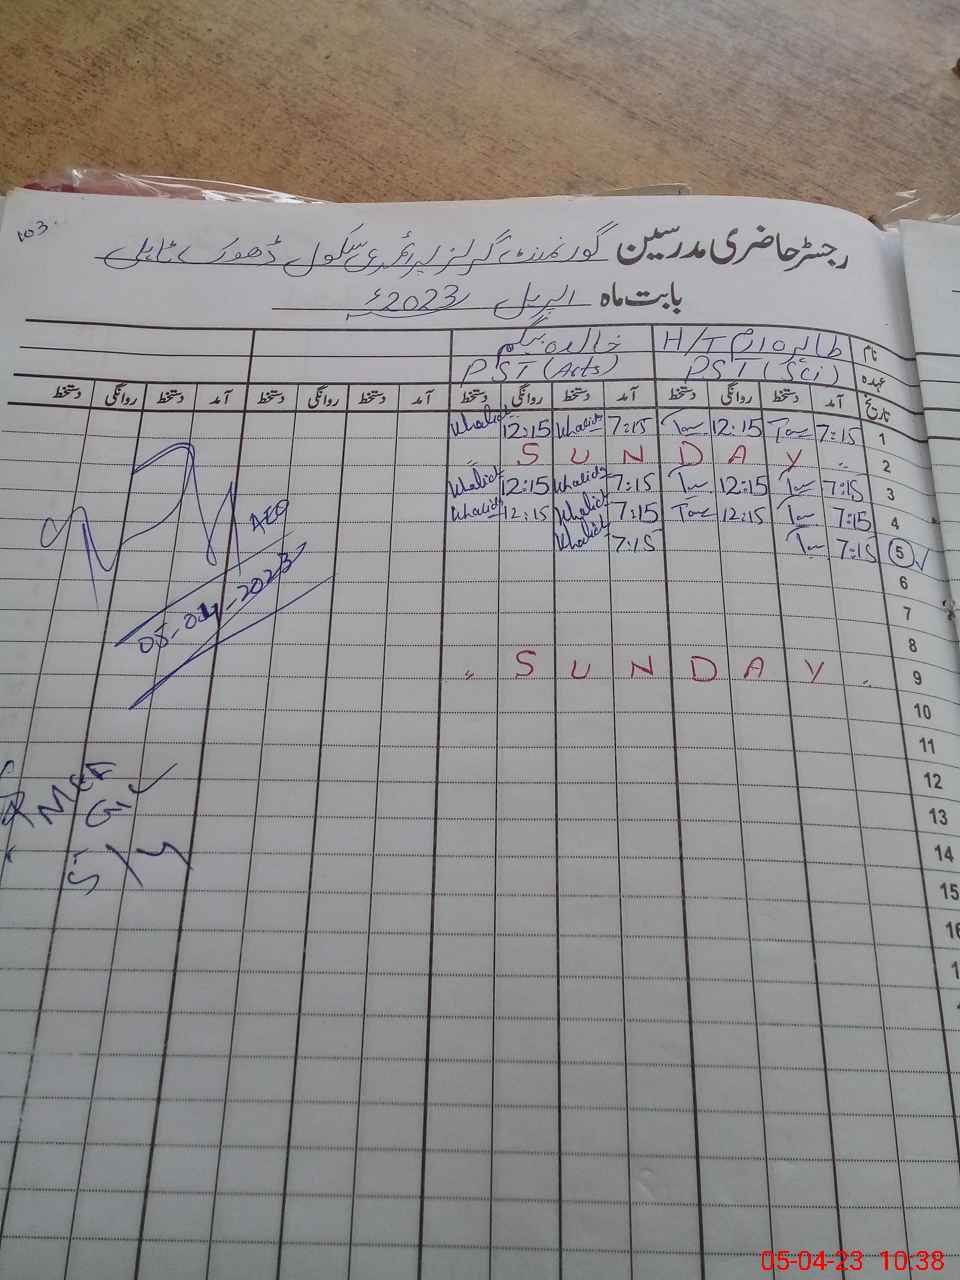 103
رجسٹر حاضری مدرسین گورنمنٹ گرلز پرائمری سکول ڈھوک
بابت ماہ اپریل 2023ء
نام طاہرہ H/T خالدہ بیگم
عہدہ PST (Sci) PST (Arts)
تاریخ آمد دستخط روانگی دستخط آمد دستخط روانگی دستخط آمد دستخط روانگی دستخط آمد دستخط روانگی دستخط
1 7:15 12:15 7:15 Khalida 12:15 Khalida
2 S U N D A Y
3 7:15 12:15 7:15 Khalida 12:15 Khalida
4 7:15 12:15 7:15 Khalida 12:15 Khalida
5 7:15 7:15 Khalida
6
7
8
9 S U N D A Y
10
11
12
13
14
15
16
AEO
05-04-2023
MEA
05-04-23 10:38